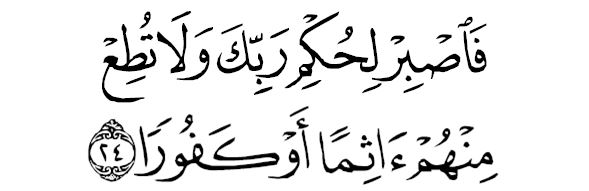 فَٱصْبِرْ لِحُكْمِ رَبِّكَ وَلَا تُطِعْ
مِنْهُمْ ءَاثِمًا أَوْ كَفُورًا ٢٤